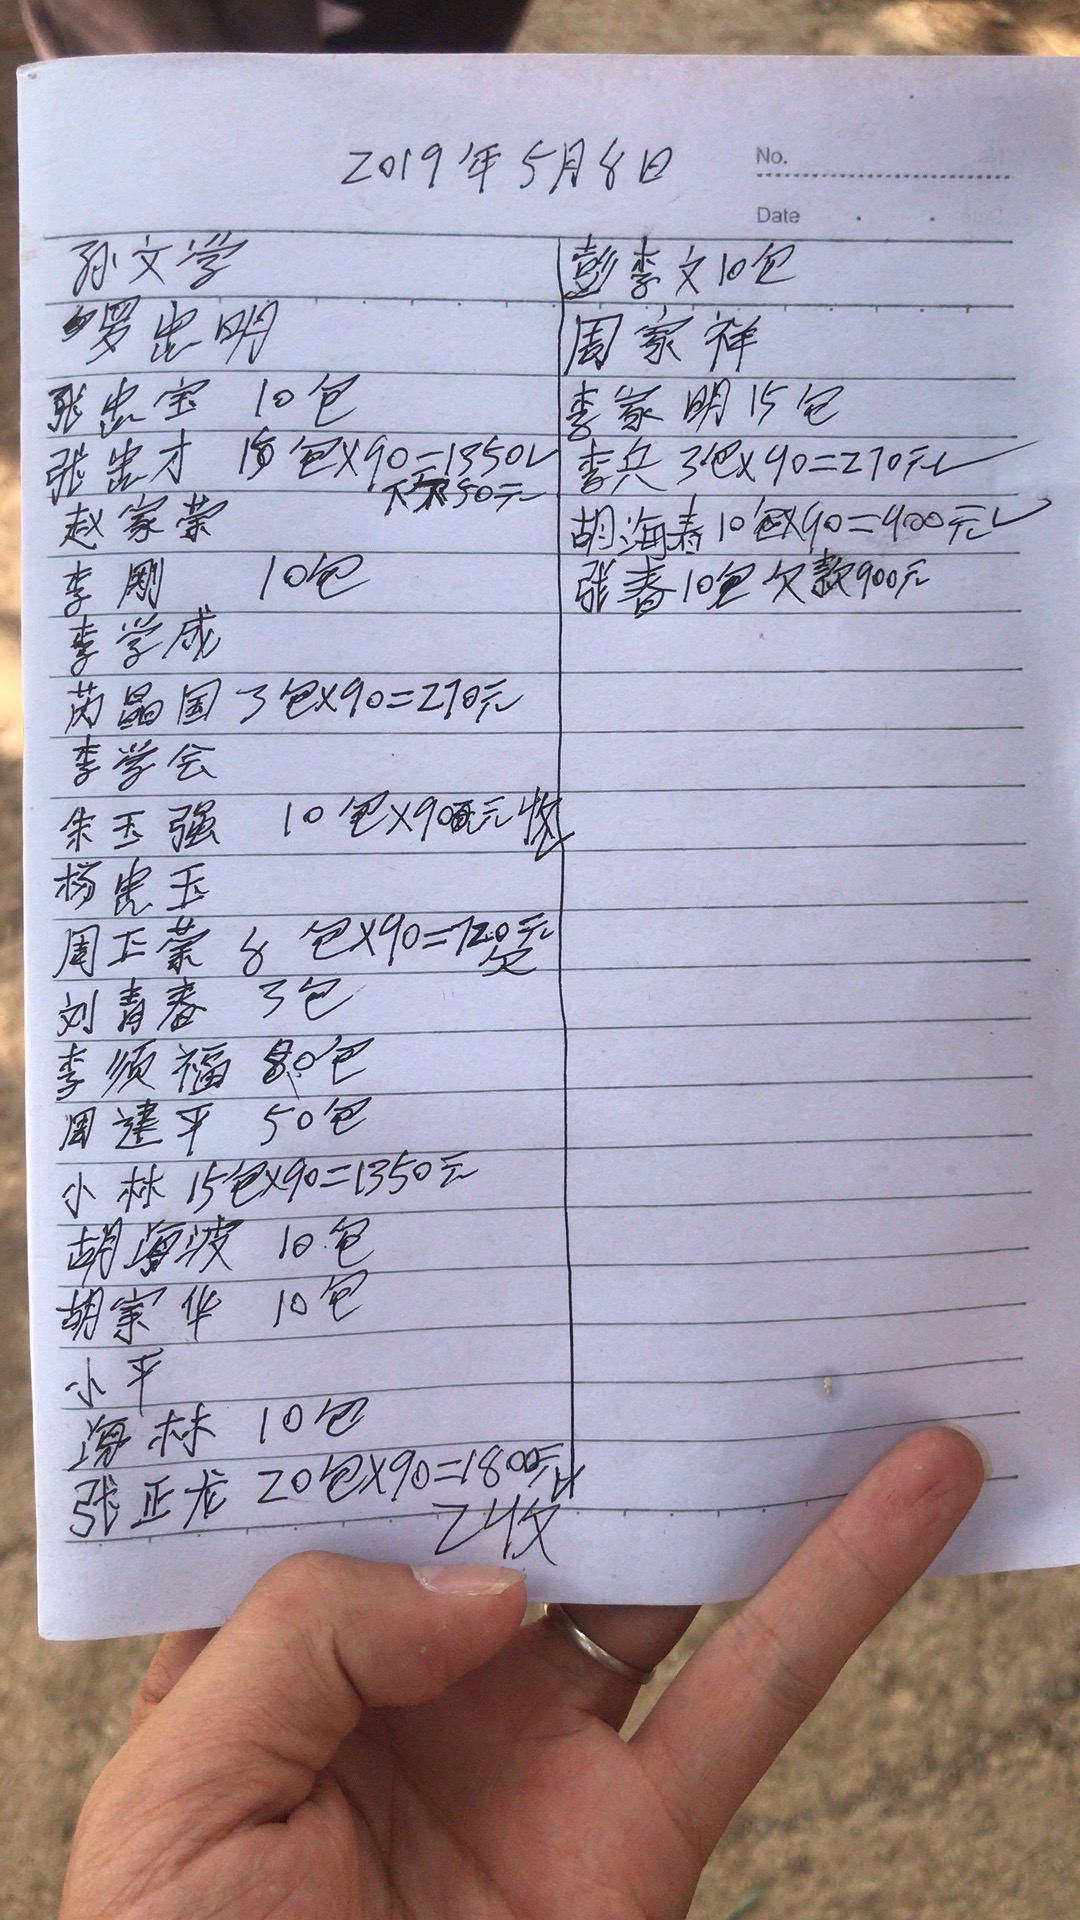 2019年5月8日
No.
Date
孙文学
罗忠明
张忠宝 10包
张忠才 15包X90=1350
欠50元
赵家荣
李刚 10包
李学成
芮晶国 3包X90=270元
李学会
朱玉强 10包X900元收
杨忠玉
周正荣 8包X90=720元
欠
刘青春 3包
李须福 80包
周建平 50包
小林 15包X90=1350元
胡海波 10包
胡家华 10包
小平
海林 10包
张正龙 20包X90=1800元
已收
彭李文10包
周家祥
李家明15包
李兵 3包X90=270元✓
胡海春10包X90=900元✓
张春10包欠款900元